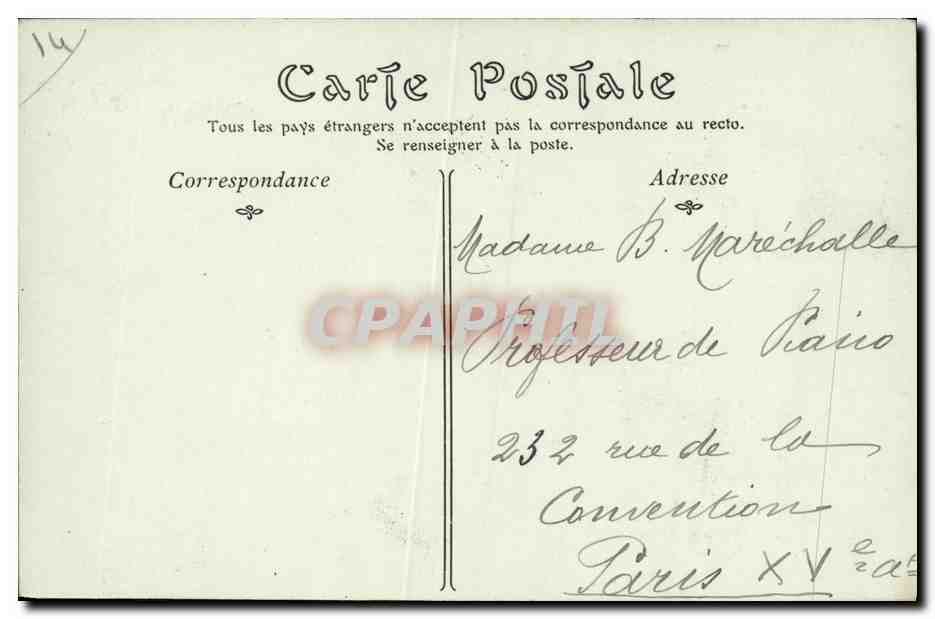 14
Carte Postale
Tous les pays étrangers n'acceptent pas la correspondance au recto.
Se renseigner à la poste.
Correspondance
Adresse
Madame B. Maréchalle
CPAPHIL
Professeur de Piano
232 rue de la
Convention
Paris XVe at